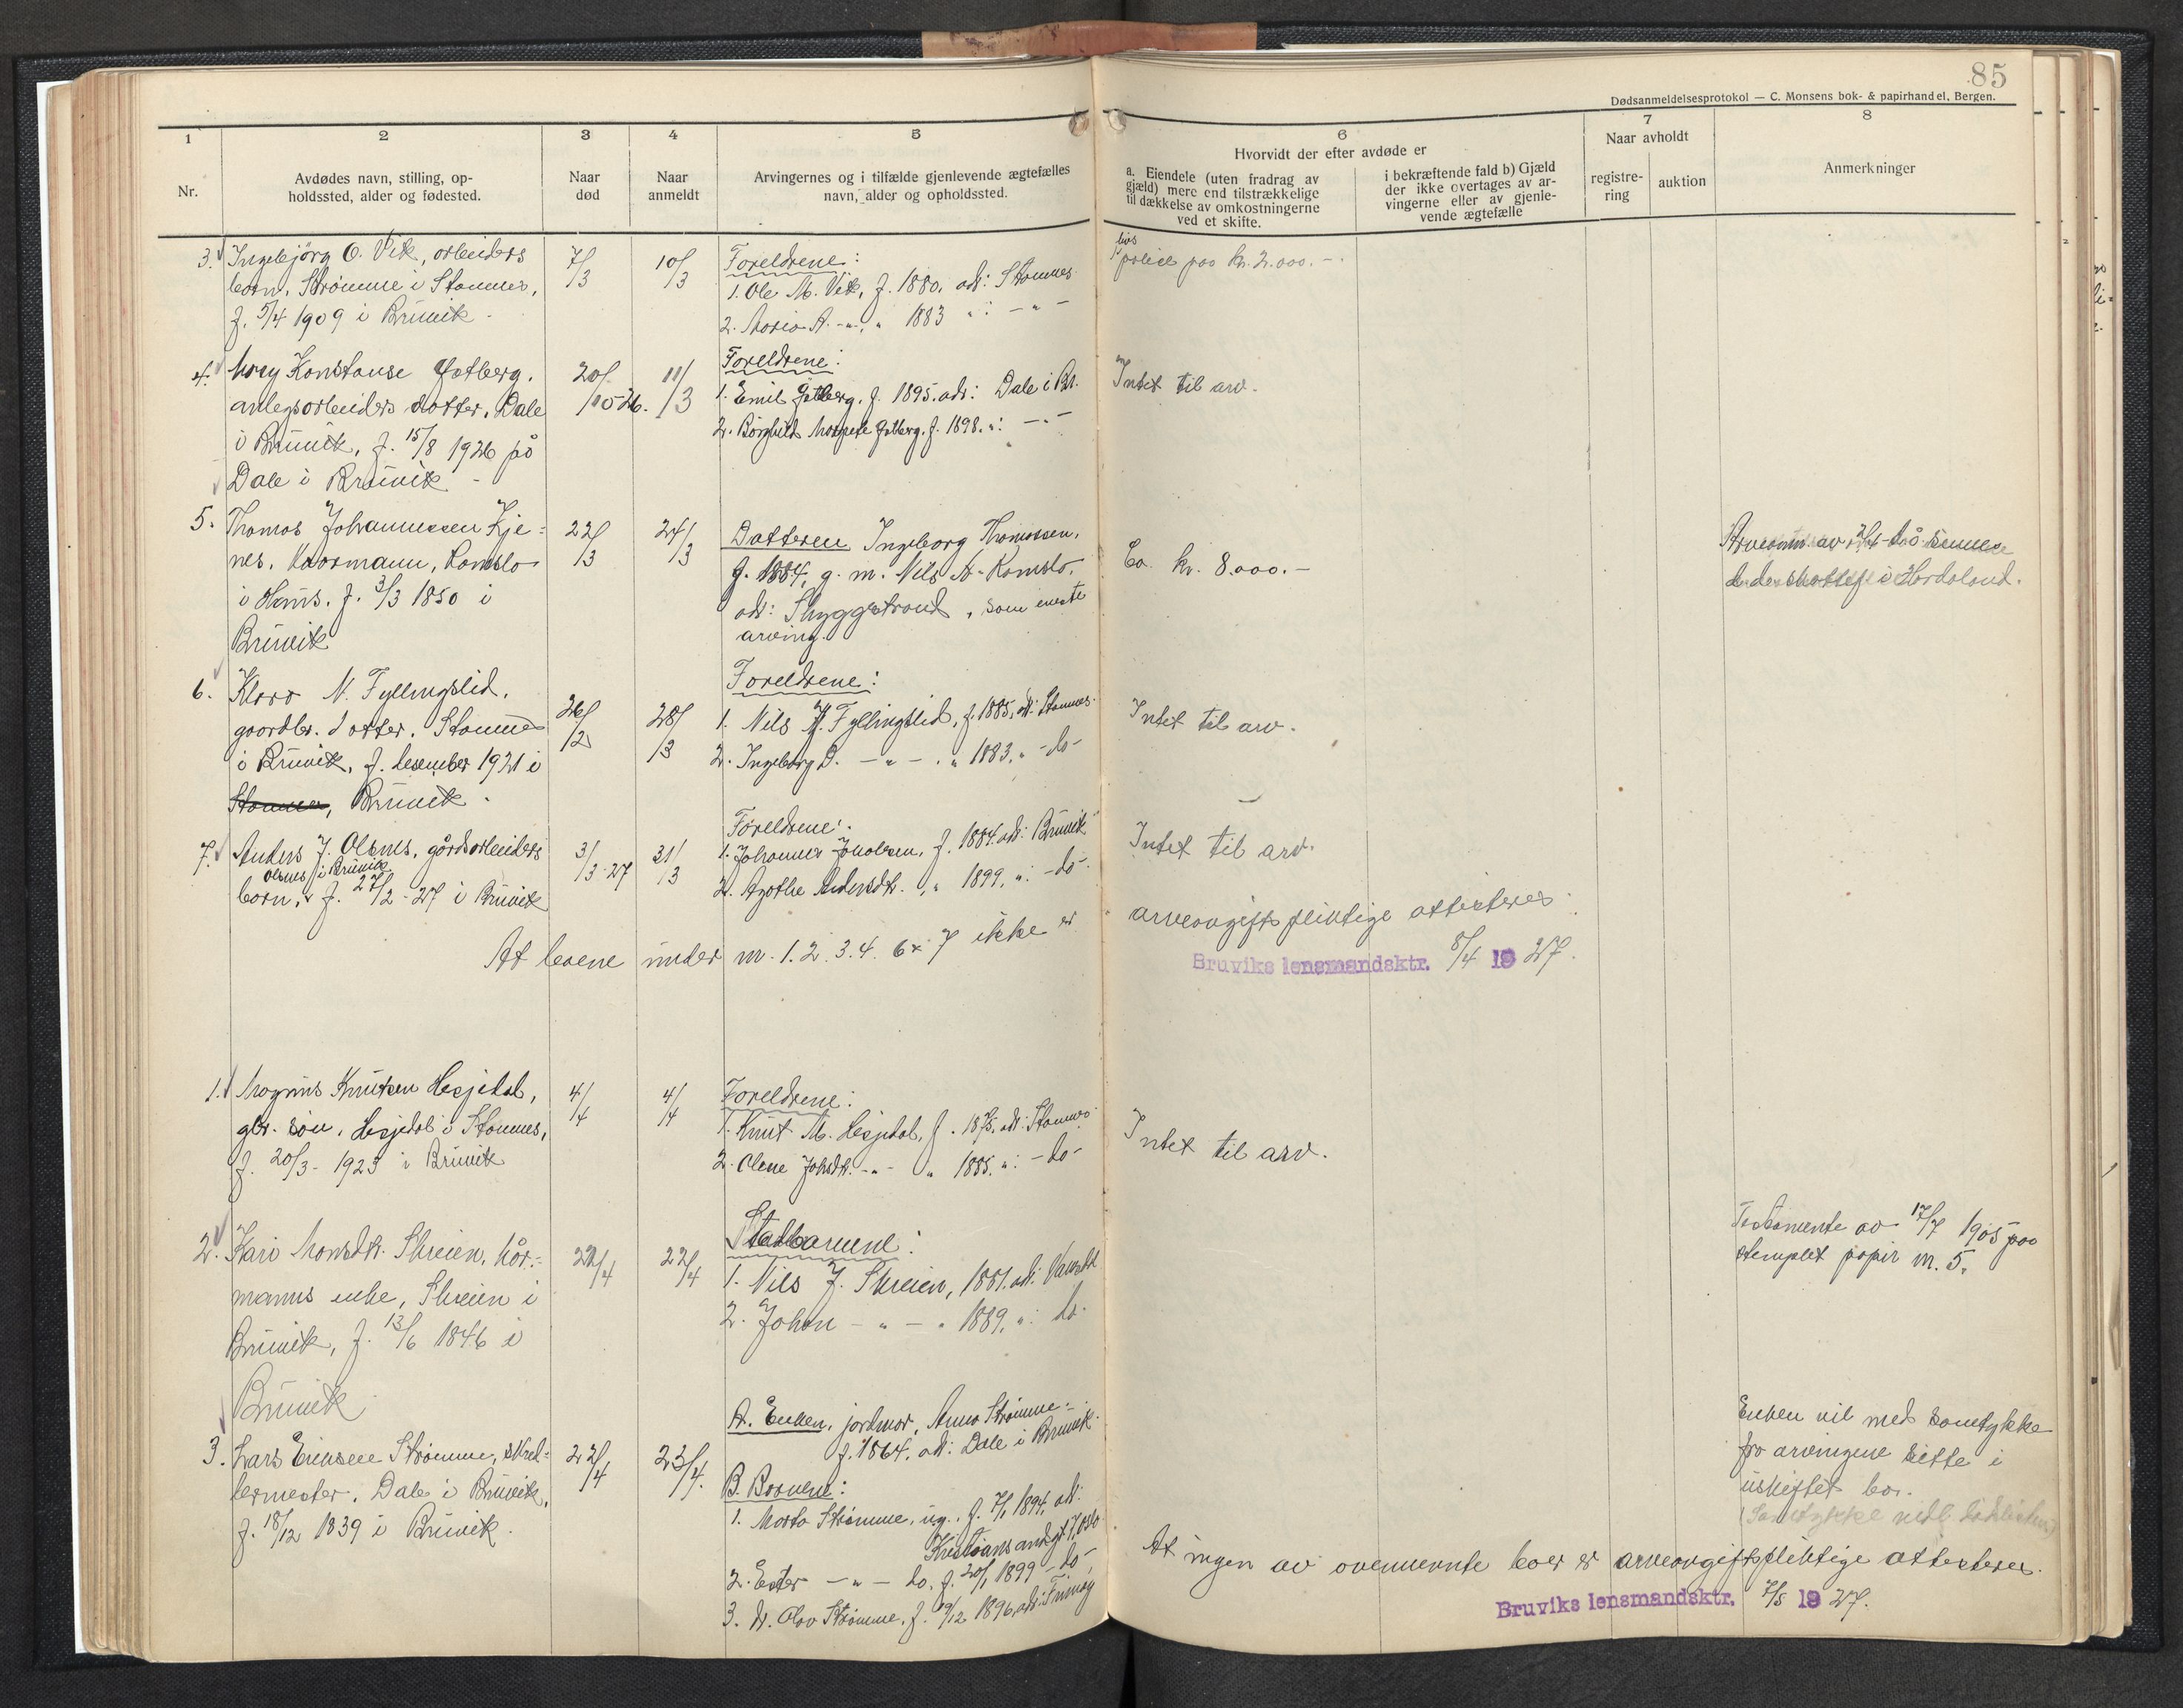 85
Dødsanmeldelsesprotokol — C. Monsens bok- & papirhandel, Bergen.
1
2
3
4
5
6
7
8
Nr.
Avdødes navn, stilling, op-
holdssted, alder og fødested.
Naar
død
Naar
anmeldt
Arvingernes og i tilfælde gjenlevende ægtefælles
navn, alder og opholdssted.
Hvorvidt der efter avdøde er
a. Eiendele (uten fradrag av
gjæld) mere end tilstrækkelige
til dækkelse av omkostningerne
ved et skifte.
i bekræftende fald b) Gjæld
der ikke overtages av ar-
vingerne eller av gjenle-
vende ægtefælle
Naar avholdt
registre-
ring
auktion
Anmerkninger
3. Ingebjörg O. Vik, arbeiders
barn, Strømme i Stamnes,
f. 5/4 1909 i Bruvik.
7/3
10/3
Foreldrene:
1. Ole M. Vik, f. 1880, adr: Stamnes
2. Maria A. -"-, " 1883 ": -"-
livs
police paa kr. 2.000.-
4. Mary Konstanse Gotberg,
anlegsarbeiders dotter, Dale
i Bruvik, f. 15/8 1926 på
Dale i Bruvik -
20/10 26.
11/3
Foreldrene:
1. Emil Gotberg, f. 1895, adr: Dale i Br.
2. Borghild Gotberg, f. 1898. ": -"-
Intet til arv.
5. Thomas Johannessen Kje=
nes, Romslo
i Haus. f. 3/3 1850 i
Bruvik
22/3
24/3
Datteren Ingeborg Thomassen,
f. 1884, g. m. Nils A. Romslo,
adr: Skyggestrand, som eneste
arving.
Ca. kr. 8.000.-
av 2/4 då senere
i Hordaland.
6. Klara N. Fyllingslid,
gaardbr. dotter, Stamnes
i Bruvik, f. desember 1921 i
Stamnes, Bruvik.
26/2
28/3
Foreldrene:
1. Nils K. Fyllingslid, f. 1885, adr: Stamnes
2. Ingeborg D. -"-. " 1883, " -do-
Intet til arv.
7. Anders J. Olsnes, gårdsarbeiders
olsnes i Bruvik
barn, f. 27/2-27 i Bruvik
3/3-27
31/3
Foreldrene:
1. Johannes Jonassen, f. 1884. adr: Bruvik
2. Agathe Andersdtr. , " 1899, ": -do-
Intet til arv.
At boene under nr. 1. 2. 3. 4. 6 & 7 ikke er
arveavgiftspliktige attesteres
Bruviks lensmandsktr. 8/4 1927.
1. Magnus Knutsen Hesjedal,
gbr. søn, Hesjedal i Stamnes,
f. 20/3-1923 i Bruvik
4/4
4/4
Foreldrene:
1. Knut M. Hesjedal, f. 1875, adr: Stamnes
2. Olene Johsdtr. -"- " 1885, ": -do-
Intet til arv.
2. Kari Monsdtr. Skreien, kår-
manns enke, Skreien i
Bruvik, f. 13/6 1846 i
Bruvik
22/4
22/4
Stedbarnene:
1. Nils J. Skreien, 1881, adr:
2. Johan -"- " 1889, ": do-
Testamente av 17/7 1905 paa
stemplet papir m. 5.
3. Lars Eriksen Strømme, skred-
dermester, Dale i Bruvik,
f. 18/12 1839 i Bruvik.
22/4
23/4.
A. Enken, jordmor, Anna Strømme-
f. 1864, adr: Dale i Bruvik.
B. Barnene:
1. Marta Strømme, ug., f. 7/1 1894, adr:
Kristiansandgt 7, Oslo
2. Ester -"- do. f. 20/1 1899 -do-
3. Olav Strømme, f. 19/12 1896, adr:
Enken vil med samtykke
fra arvingene sitte i
uskiftet bo.
At ingen av ovennevnte boer er arveavgiftspliktige attesteres.
Bruviks lensmandsktr. 7/5 1927.